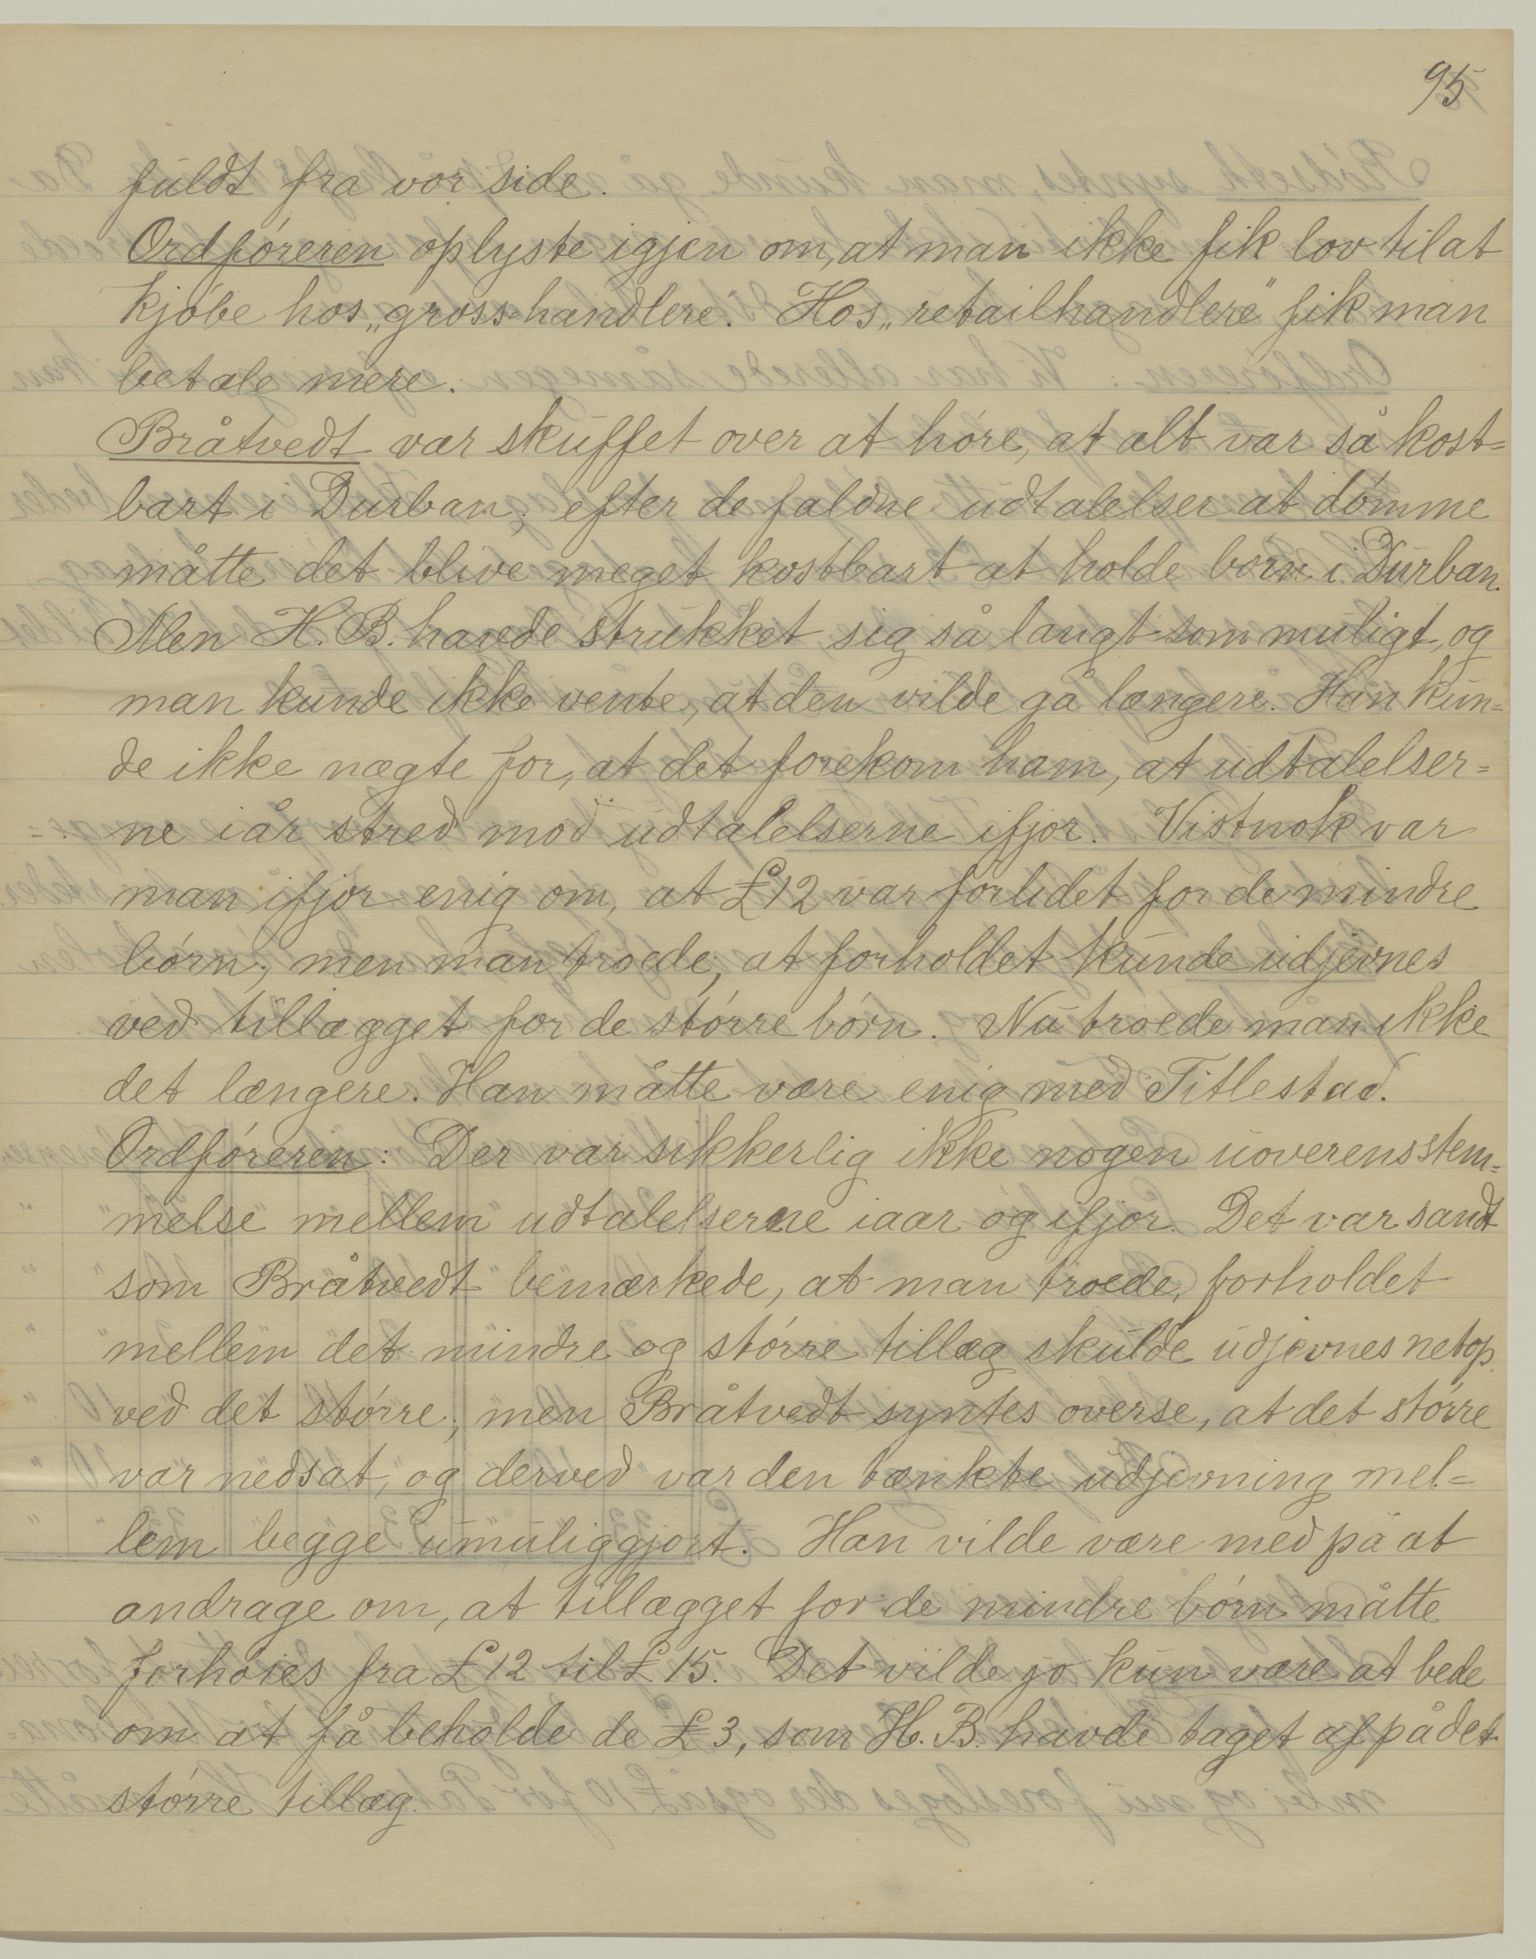 95
fuldt fra vor side.
Ordføreren oplyste igjen om, at man ikke fik lov til at
kjøbe hos „gross-handlere”. Hos „retailhandlere” fik man
betale mere.
Bråtvedt var skuffet over at høre, at alt var så kost=
bart i Durban; efter de faldne udtalelser at dømme
måtte det blive meget kostbart at holde børn i Durban.
Men H. B. havde strukket sig så langt som muligt, og
man kunde ikke vente, at den vilde gå længere. Han kun=
de ikke nægte for, at det forekom ham, at udtalelser=
ne iår stred mod udtalelserne ifjor. Vistnok var
man ifjor enig om, at £12 var forlidet for de mindre
børn; men man troede, at forholdet kunde udjevnes
ved tillægget for de større børn. Nu troede man ikke
det længere. Han måtte være enig med Titlestad.
Ordføreren: Der var sikkerlig ikke nogen uoverensstem=
melse mellem udtalelserne iaar og ifjor. Det var sandt
som Bråtvedt bemærkede, at man troede, forholdet
mellem det mindre og større tillæg skulde udjevnes netop
ved det større; men Bråtvedt syntes overse, at det større
var nedsat, og derved var den tænkte udjevning mel=
lem begge umuliggjort. Han vilde være med på at
andrage om, at tillægget for de mindre børn måtte
forhøies fra £12 til £15. Det vilde jo kun være at bede
om at få beholde de £3, som H. B. havde taget af på det
større tillæg.